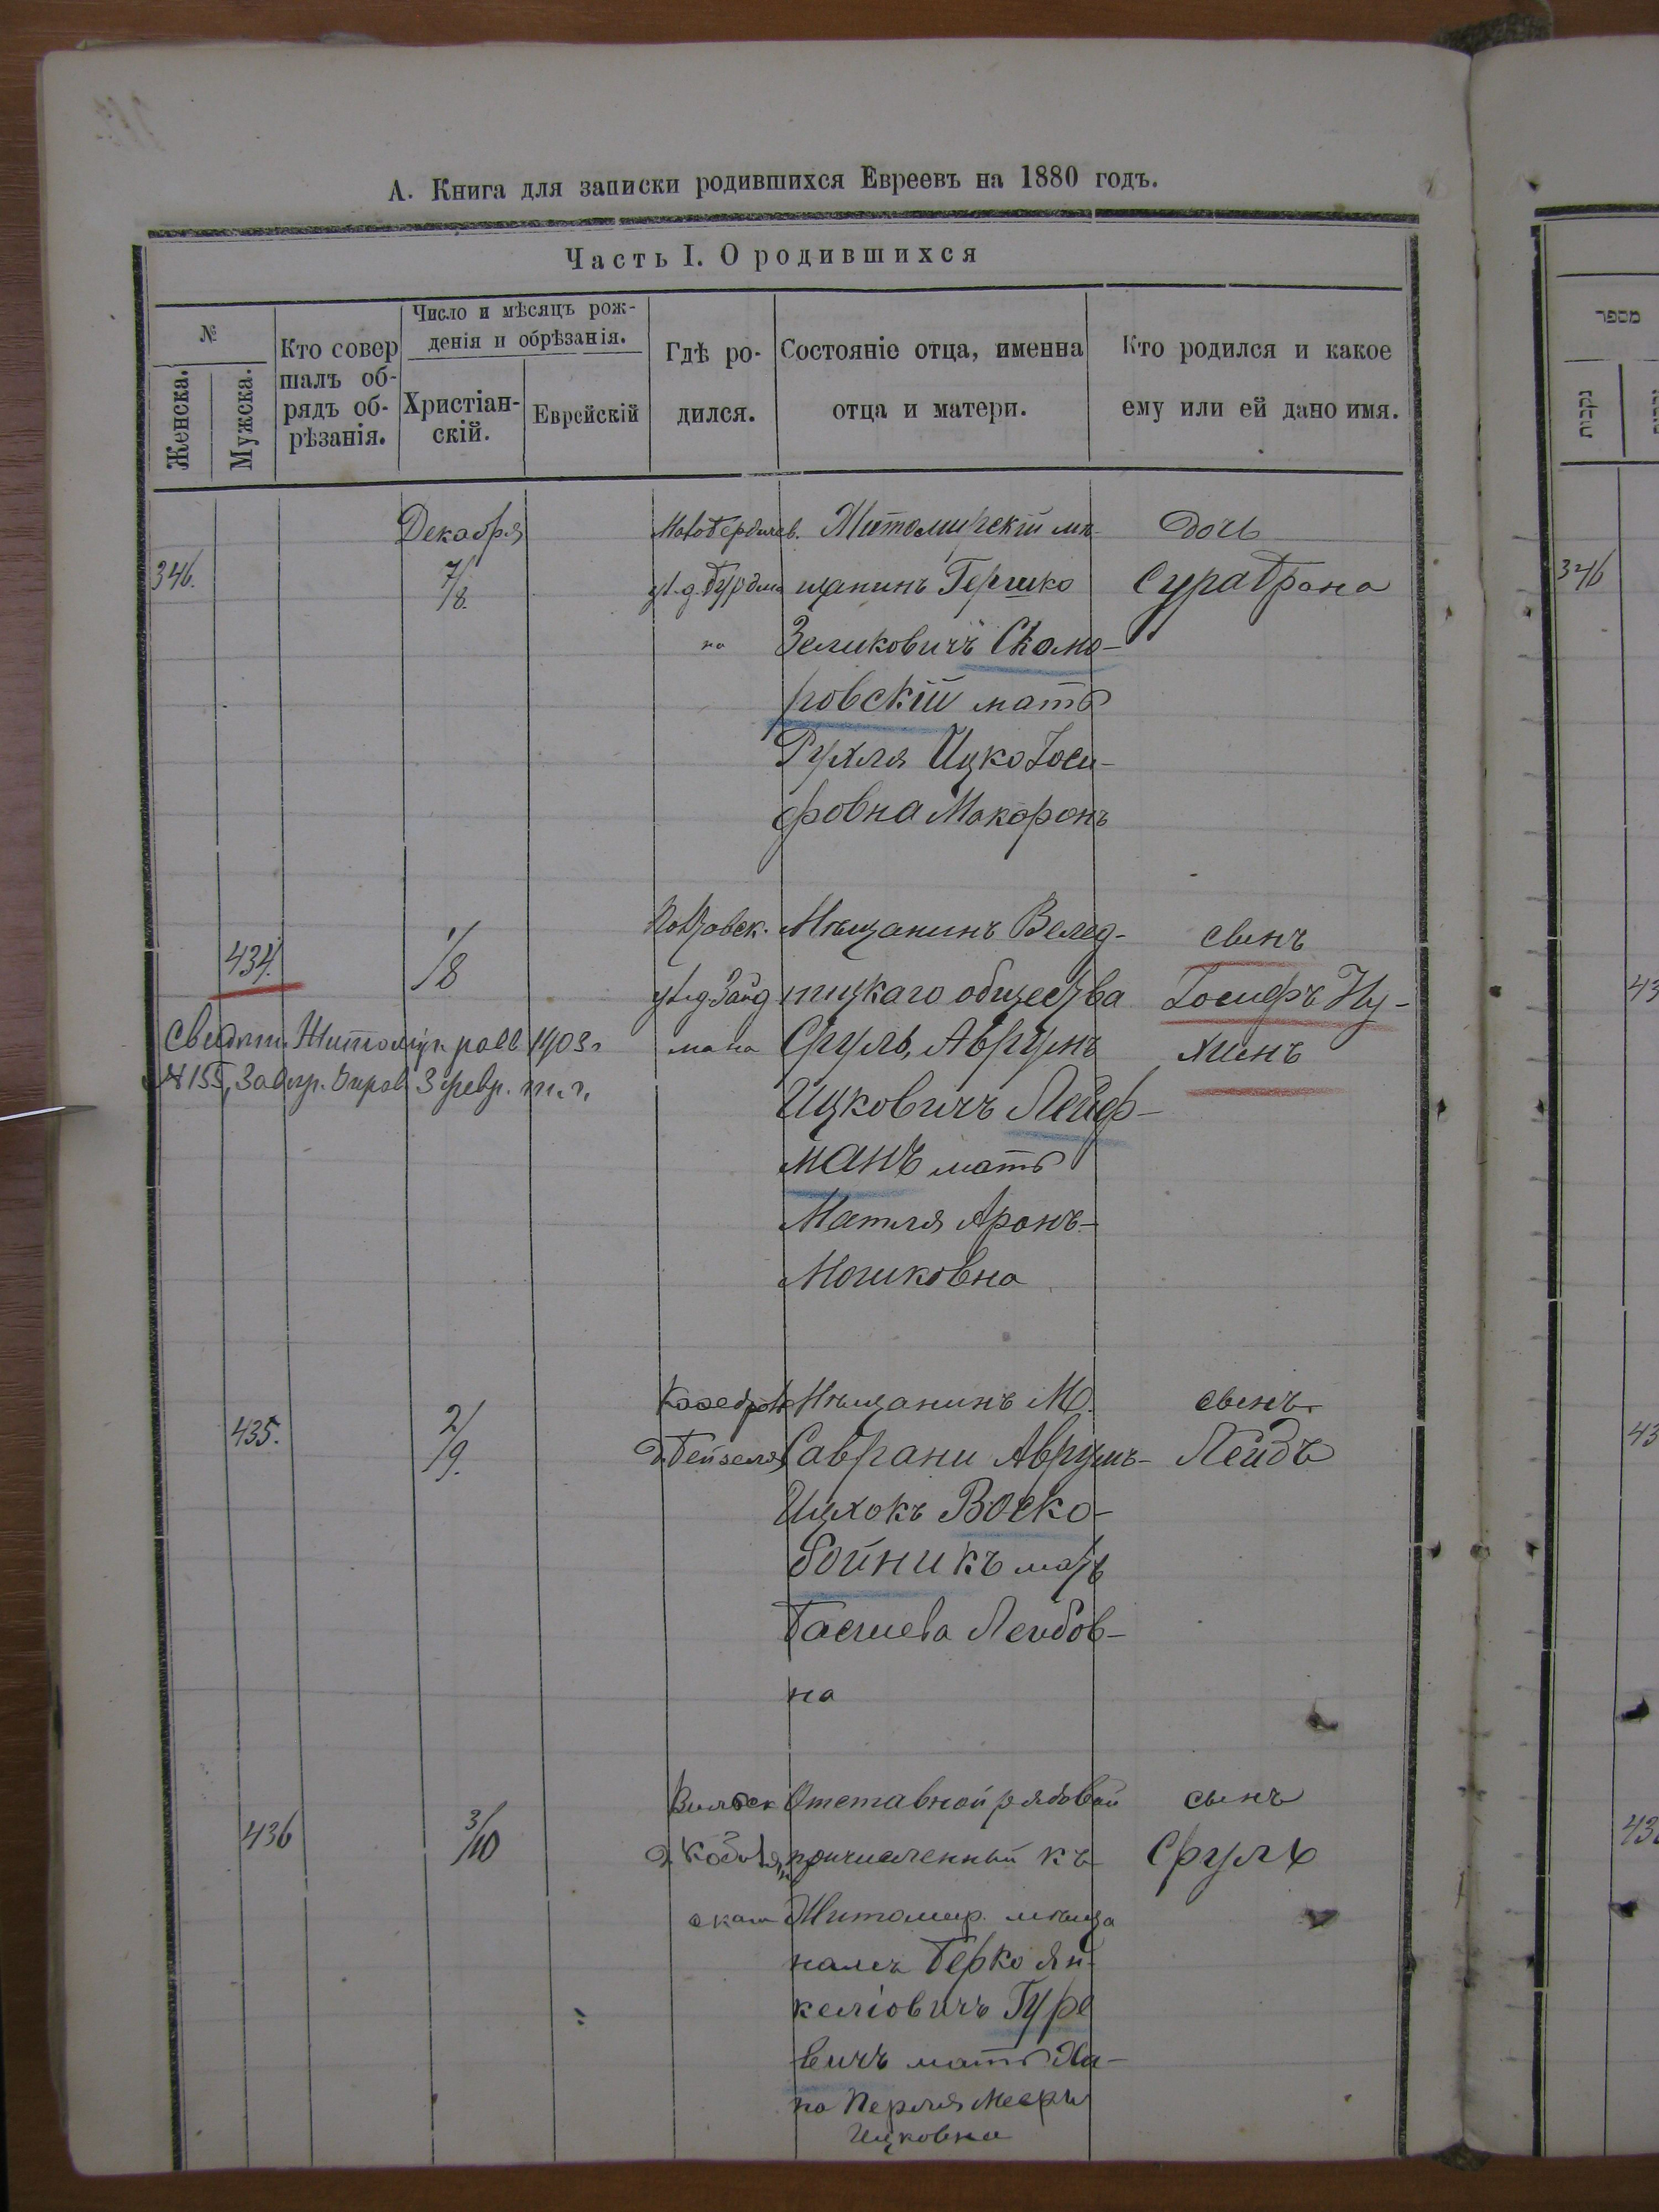 А. Книга для записки родившихся Евреевъ на 1880 годъ.
Часть I. О родившихся
№
Женска.
Мужска.
Кто совер
шалъ об-
рядъ об-
рѣзанія.
Число и мѣсяцъ рож-
денія и обрѣзанія.
Христіан-
скій.
Еврейскій
Гдѣ ро-
дился.
Состояніе отца, именна
отца и матери.
Кто родился и какое
ему или ей дано имя.
Декабря
346.
7/8.
Житомирскій мѣ-
щанинъ Гершко
Зеликовичъ Скомо-
ровскій мать
Рухля Ицко Іоси-
фовна Макоронъ
дочь
Сура Брана
434.
1/8
Мѣщанинъ Велед-
ницкаго общества
Сруль, Аврумъ
Ицковичъ Лейф-
манъ мать
Матля Аронъ-
Мошковна
сынъ
Іосифъ Ну-
химъ
Свидѣт. Житомір. равв. 1903 г
№ 155, 3 февр. т. г.
435.
2/9.
Мѣщанинъ М.
Саврани Аврумъ-
Ицхокъ Воско-
бойникъ мать
Басшева Лейбов-
на
сынъ
Лейбъ
436
3/10
Вильск
Отставной рядовой
причисленный къ
Житомир. мѣща
намъ Берко Ян-
келіовичъ Гуре
вичъ мать Ха-
на Перля Мееръ
Ицковна
сынъ
Сруль
מספר
נקבות
346
43
43
43